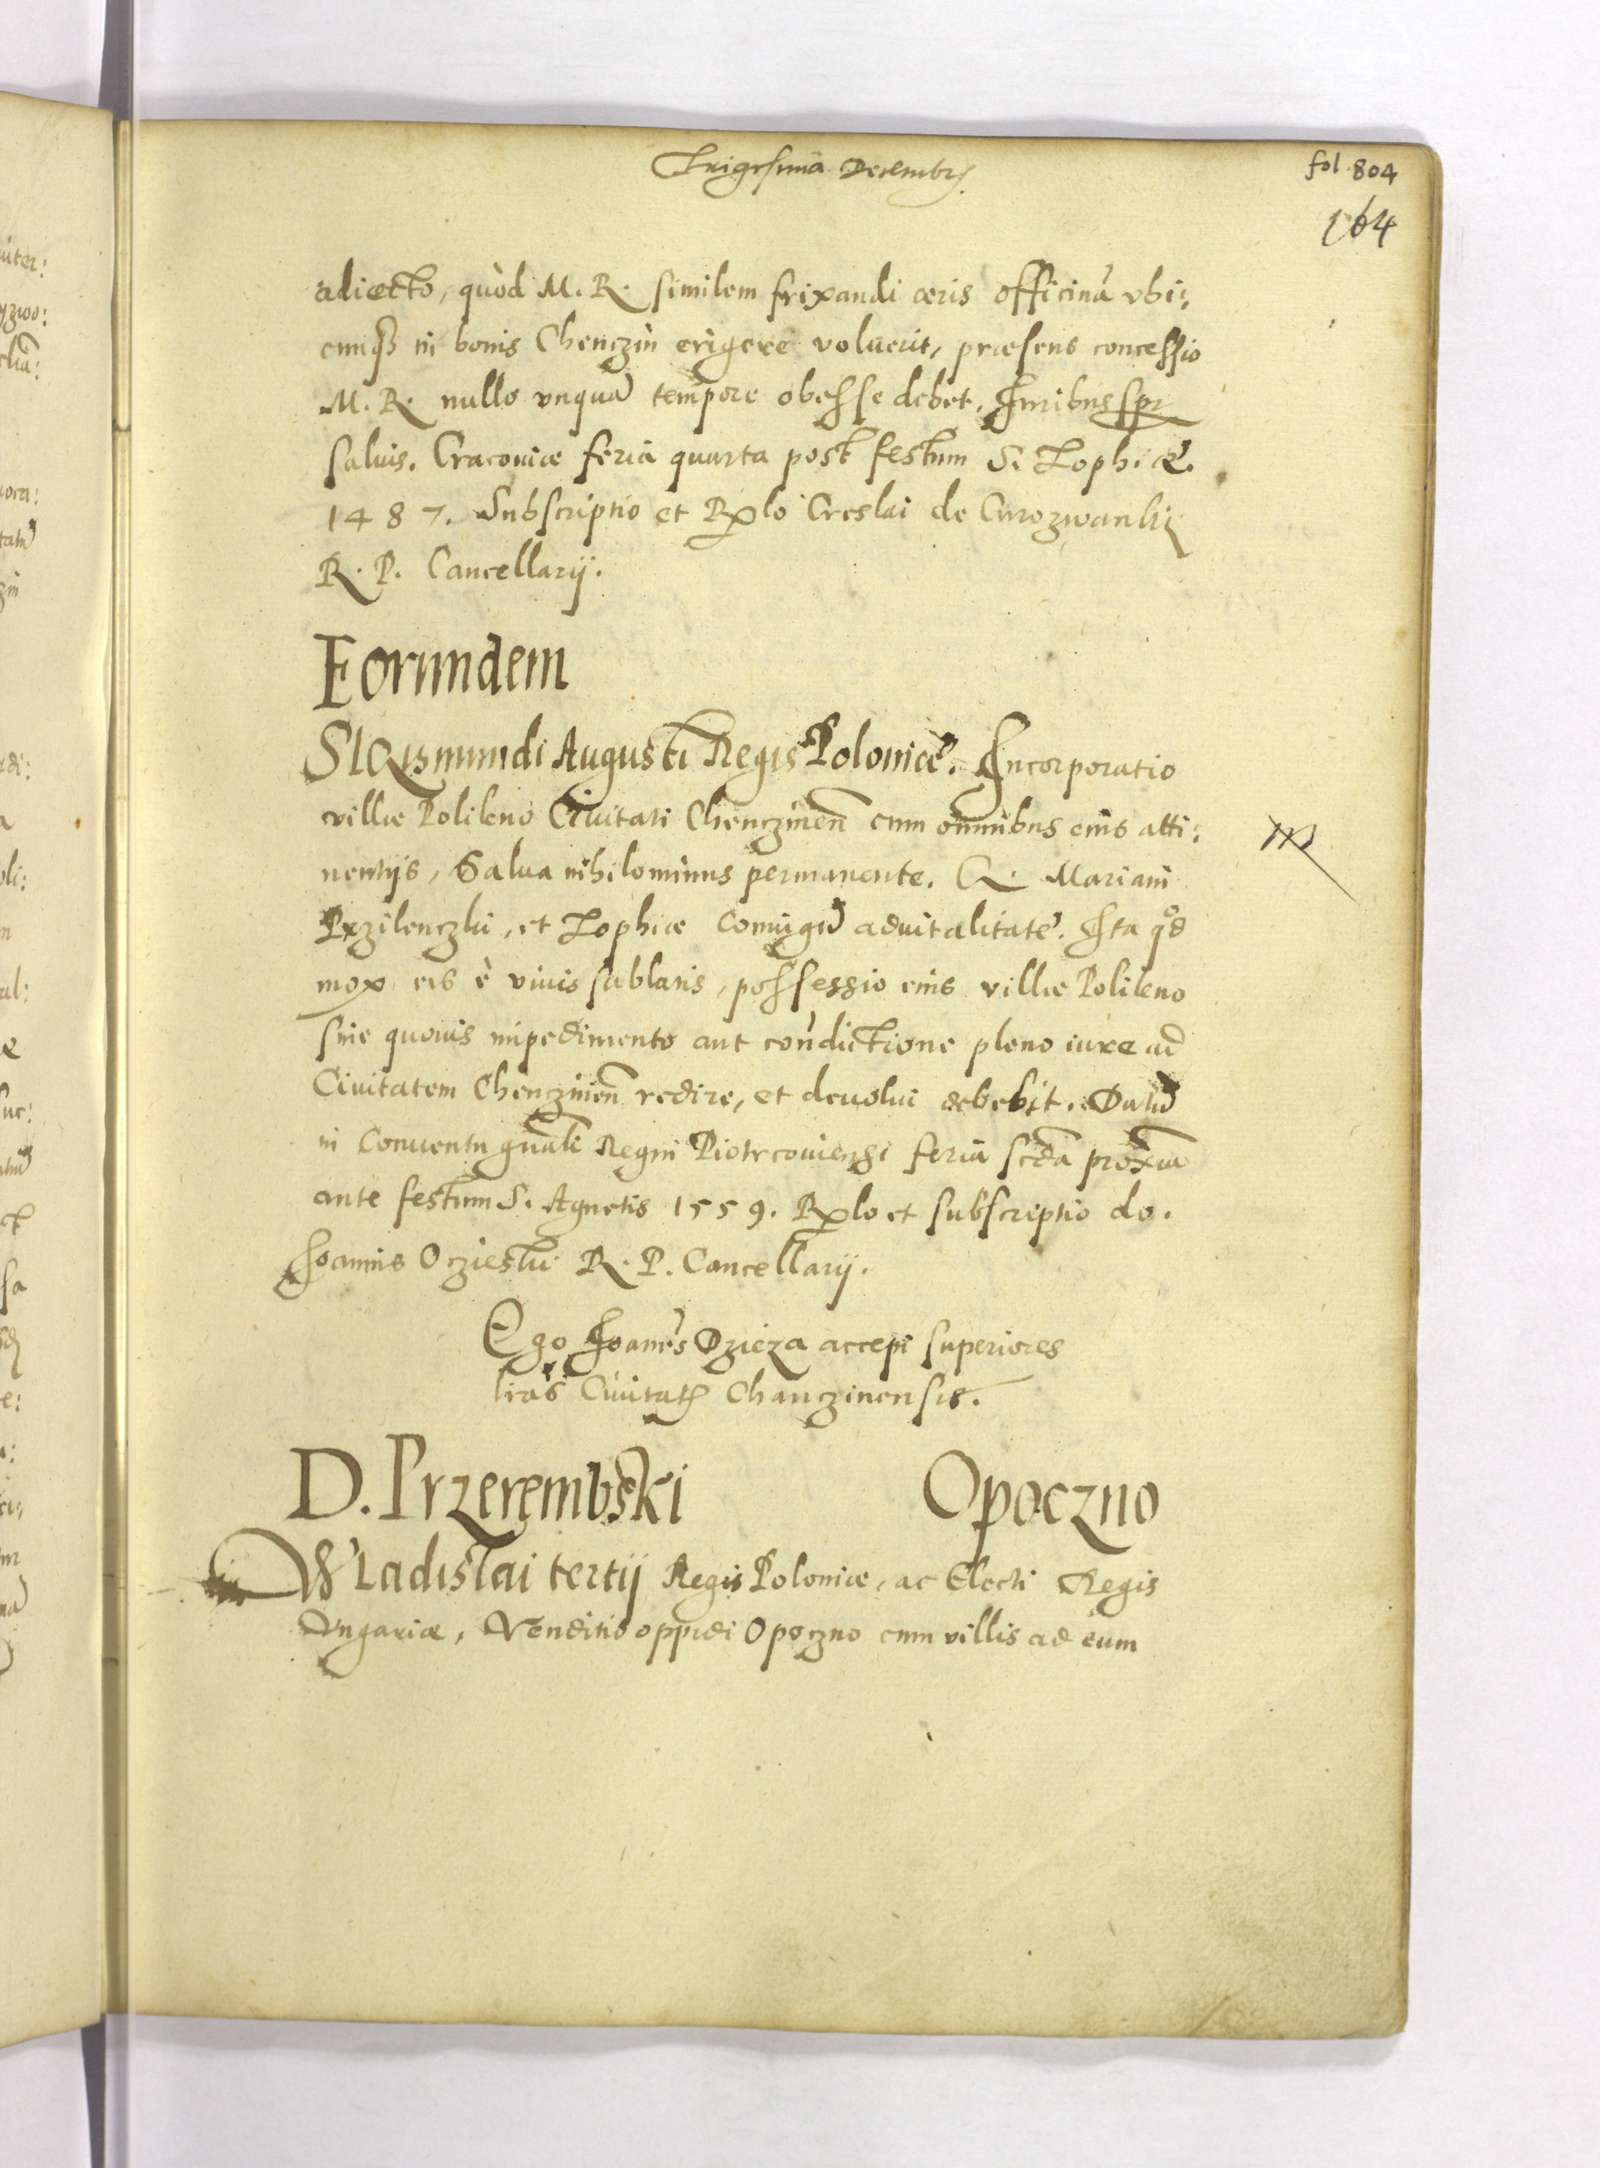 Trigesima Decembr
fol. 804
164
adiecto, quòd M. R. similem frixandi æris officinā vbi:
cunq3 in bonis Chenczin erigere voluerit, præsens concessio
M. R. nullo vnquā tempore obesse debet, Iuribus spr
saluis. Cracouiæ feria quarta post festum S. Zophiæ.
1487. Subscriptio et Rxlo Creslai de Curozwanki
R. P. Cancellarij.
Eorundem
SIGismundi Augusti Regis Poloniæ. Incorporatio
villæ Polikno Ciuitati Chenczinen cum omnibus eius atti:
nentijs, Salua nihilominus permanente. G. Mariani
Przilenczki, et Zophiæ Coniugū aduitalitate. Ita qd
mox eis è viuis sublatis, possessio eius villæ Polikno
sine quouis impedimento aut condictione pleno iure ad
Ciuitatem Chenczinen redire, et deuolui debebit. Datū
in Conuentu gnali Regni Piotrcouiensi feria scda proxia
ante festum S. Agnetis 1559. Rxlo et subscriptio do.
Ioannis Oczieski R. P. Cancellarij.
Ego Joanes Dzieza accepi superiores
lras Ciuitatis Chanczinensis.
D. Przerembski Opoczno
Wladislai tertij Regis Poloniæ, ac Electi Regis
Vngariæ, Venditio oppidi Opoczno cum villis ad eum